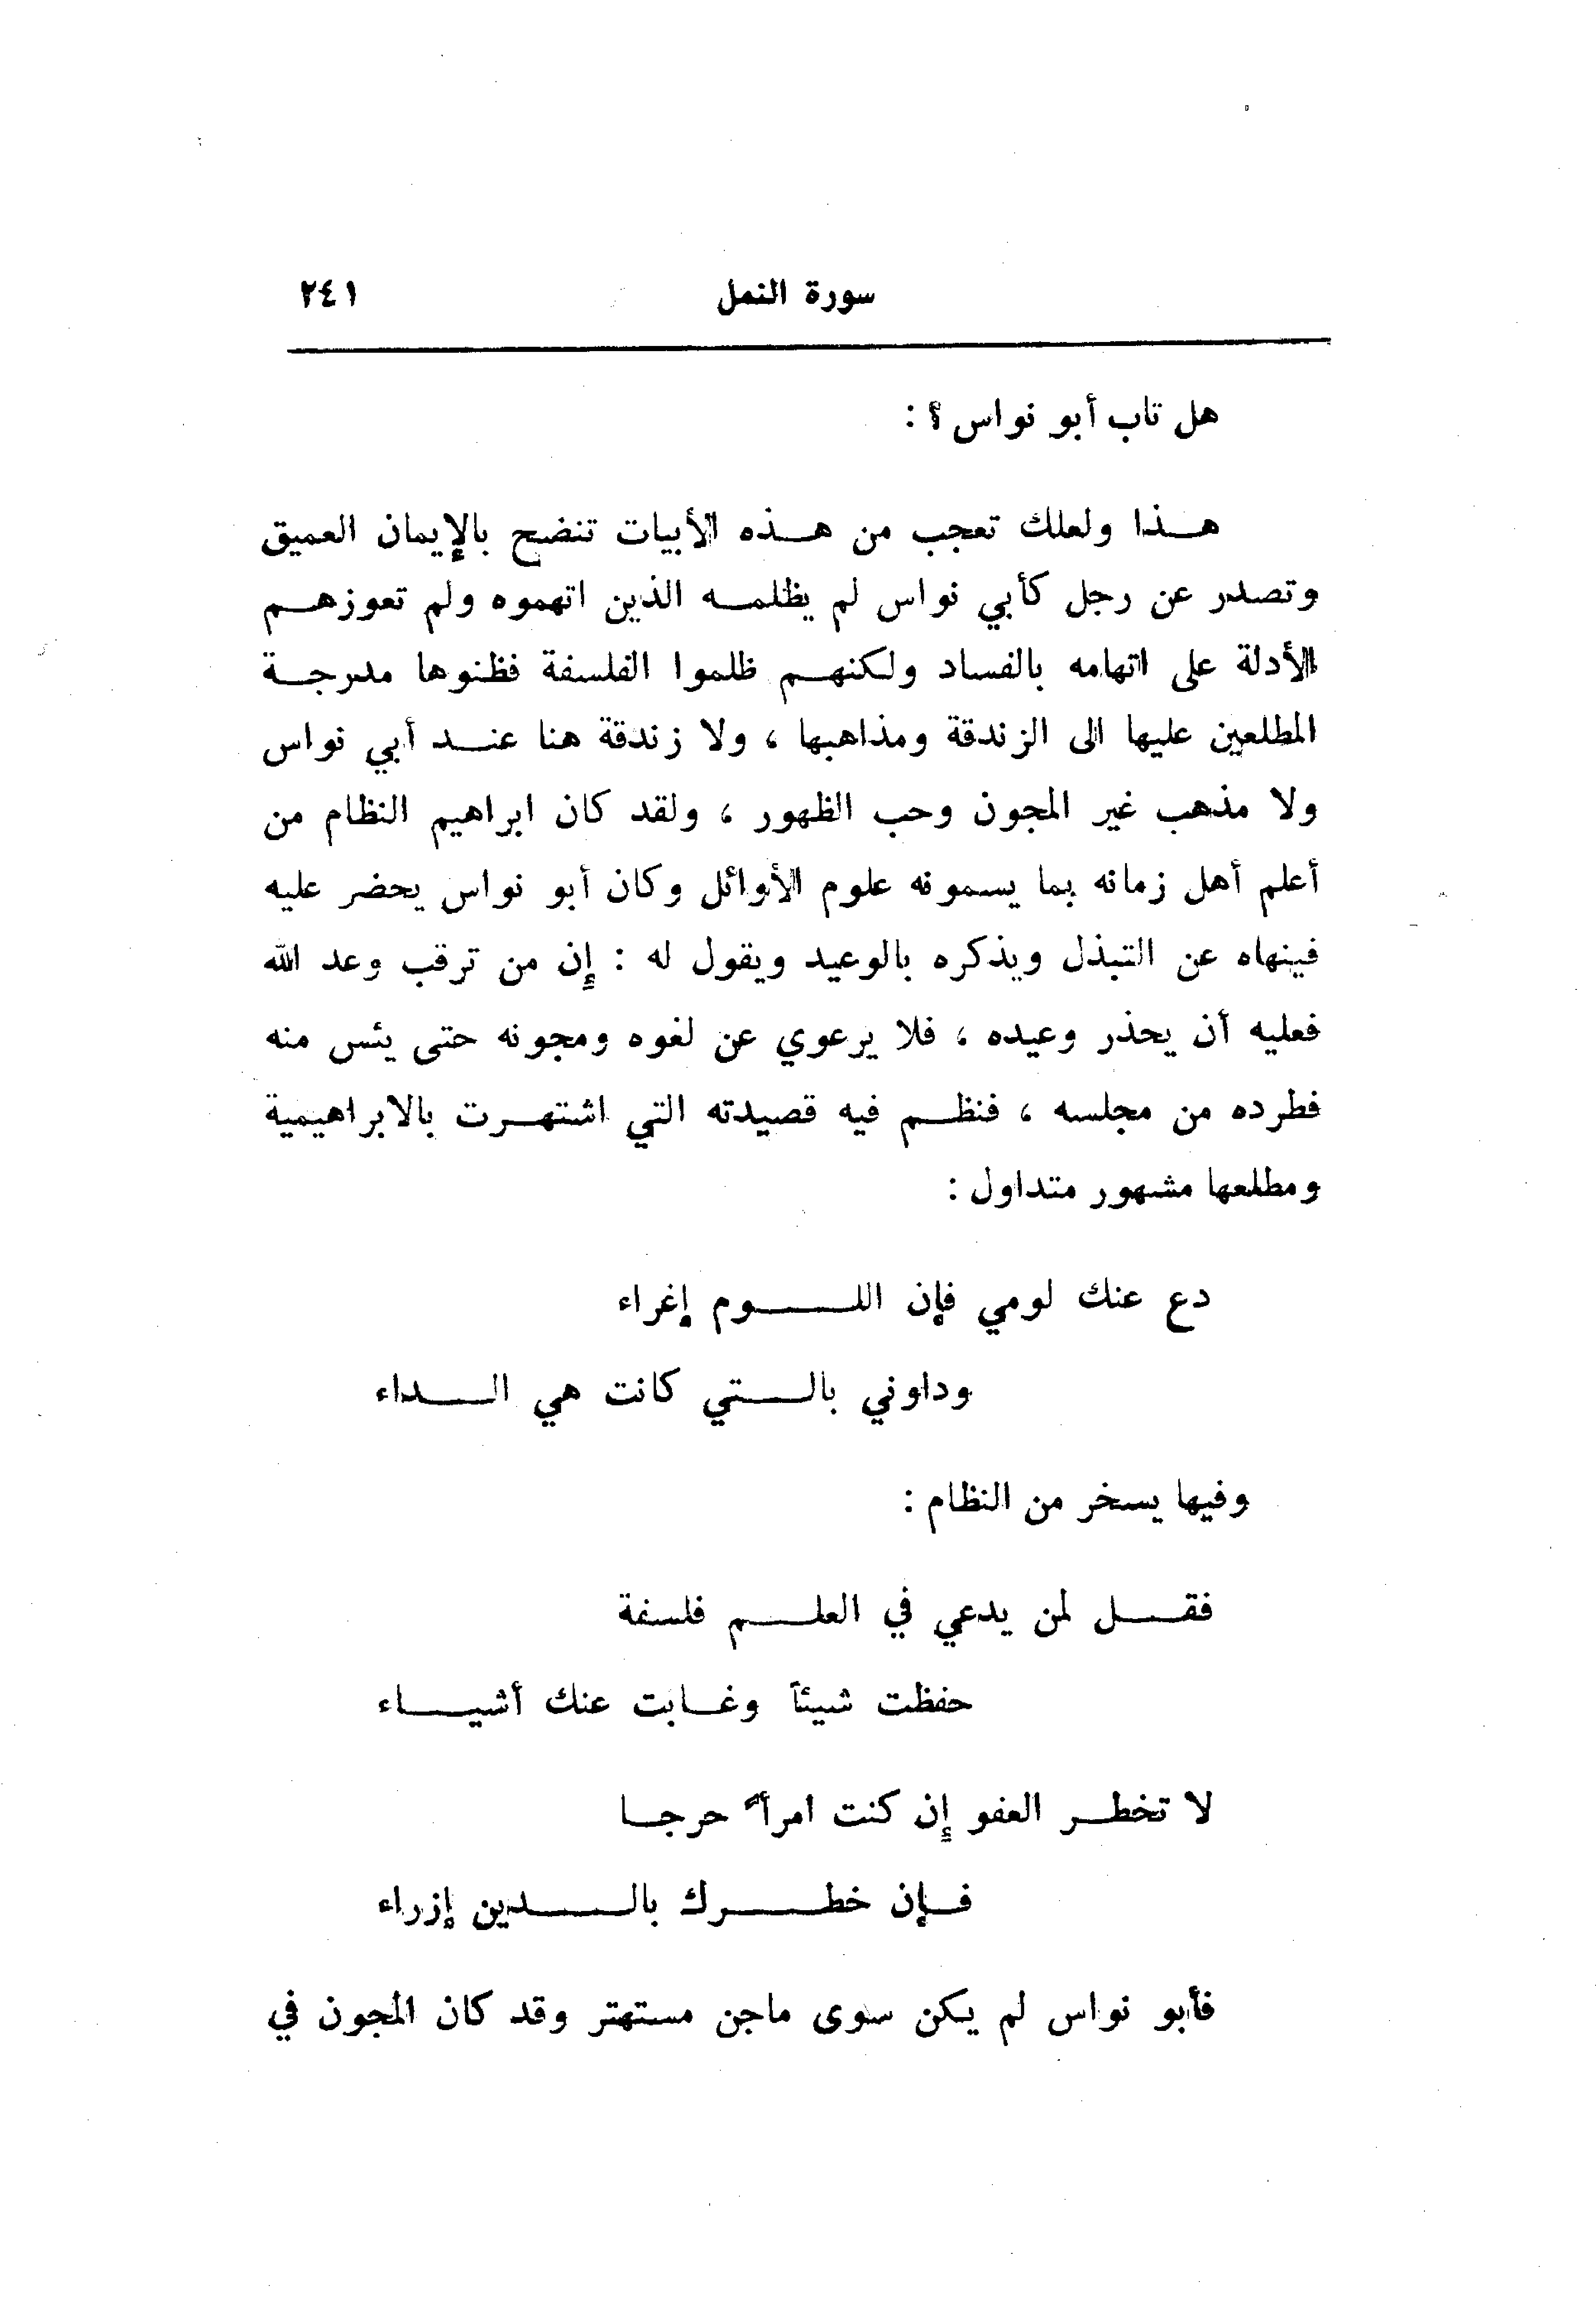 سورة النمل ٢٤١
هل تاب أبو نواس ؟ :
هـــذا ولعلك تعجب من هـــذه الأبيات تنضح بالإيمان العميق
وتصدر عن رجل كأبي نواس لم يظلمـــه الذين اتهموه ولم تعوزهـــم
الأدلة على اتهامه بالفساد ولكنهـــم ظلموا الفلسفة فظنوها مدرجـــة
المطلعين عليها الى الزندقة ومذاهبها ، ولا زندقة هنا عنـــد أبي نواس
ولا مذهب غير المجون وحب الظهور ، ولقد كان ابراهيم النظام من
أعلم أهل زمانه بما يسمونه علوم الأوائل وكان أبو نواس يحضر عليه
فينهاه عن التبذل ويذكره بالوعيد ويقول له : إن من ترقب وعد الله
فعليه أن يحذر وعيده ، فلا يرعوي عن لغوه ومجونه حتى يئس منه
فطرده من مجلسه ، فنظـــم فيه قصيدته التي اشتهـــرت بالابراهيمية
ومطلعها مشهور متداول :
دع عنك لومي فإن اللـــــوم إغراء
وداوني بالـــتي كانت هي الـــداء
وفيها يسخر من النظام :
فقـــل لمن يدعي في العلـــم فلسفة
حفظت شيئاً وغـــابت عنك أشيـــاء
لا تخطـــر العفو إن كنت امرأً حرجـــا
فـــإن خطـــــرك بالـــــدين إزراء
فأبو نواس لم يكن سوى ماجن مستهتر وقد كان المجون في